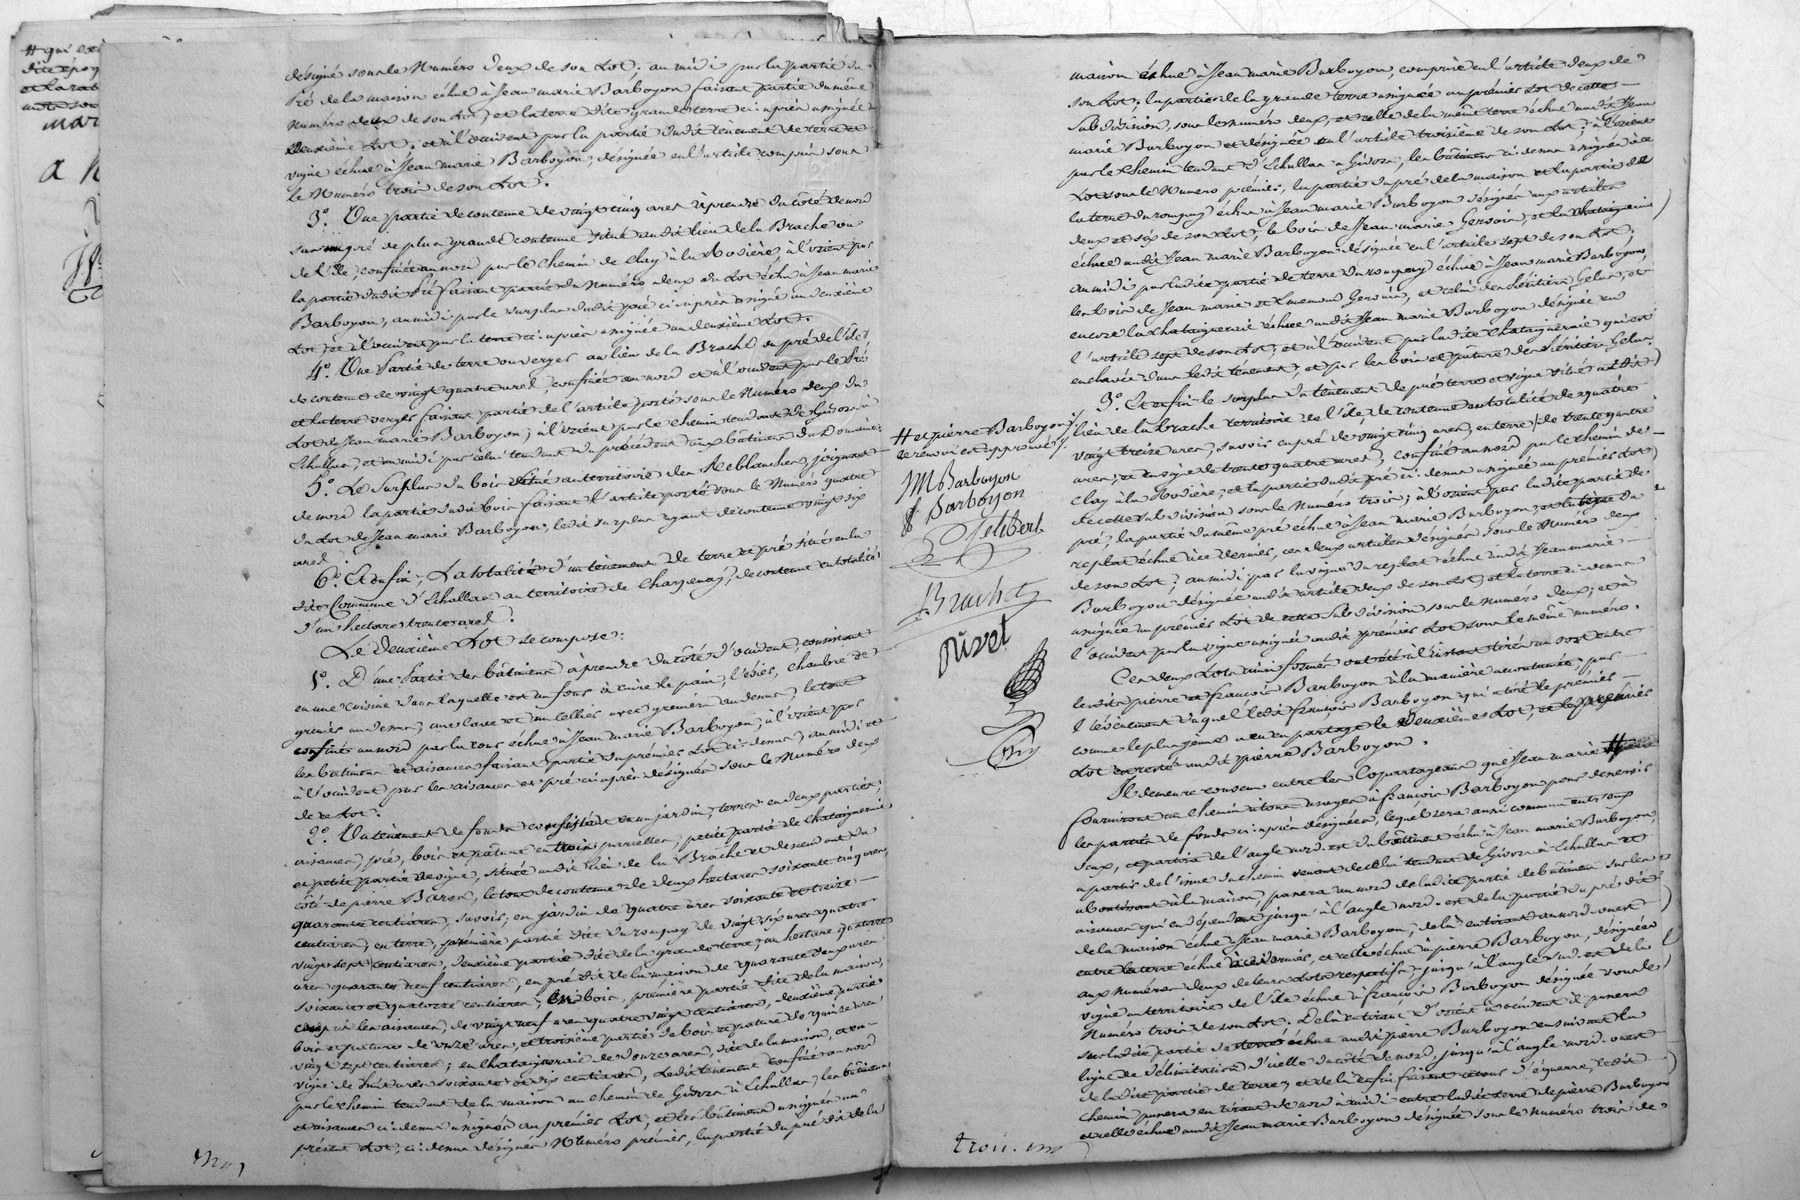 désigné sous le Numéro deux de son Lot; au midi par la partie du
Pré de la maison échue à Jean marie Barboyon faisant partie du même
Numéro deux de son Lot, et la terre dite grande terre ci-après assignée au
deuxième Lot; et à l'occident par la partie dudit tènement de terre et
vigne échue à Jean marie Barboyon, désignée en l'article compris sous
le Numéro trois de son Lot.
3.° Une partie de contenue de vingt cinq ares à prendre du côté de nord
sur un pré de plus grande contenue situé audit lieu de la Brache ou
de l'île, confinée au nord par le chemin de Clay à la Rodière, à l'orient par
la partie dudit Pré faisant partie du Numéro deux du Lot échu à Jean marie
Barboyon, au midi par le surplus dudit pré ci-après assigné au deuxième
Lot, et à l'occident par la terre ci-après assignée au deuxième Lot.
4.° Une Partie de terre ou verger au lieu de la Brache du pré de l'île,
de contenue de vingt quatre ares, confinée au nord et à l'occident par le Pré
et la terre verger faisant partie de l'article porté sous le Numéro deux du
Lot de Jean marie Barboyon; à l'orient par le chemin tendant de Givors à
Echallas, et au midi par celui tendant du précédent aux bâtimens du Domaine.
5.° Le Surplus du bois situé au territoire des Reblanches, joignant
de nord la partie dudit bois faisant l'article porté sous le Numéro quatre
du Lot de Jean marie Barboyon, ledit surplus ayant de contenue vingt six
ares.
6.° Et enfin, La totalité d'un tènement de terre et pré situé en la
dite Commune d'Echallas au territoire de Chargenay, de contenue en totalité
d'un hectare trente ares.
Le Deuxième Lot se compose:
1.° D'une Partie des bâtimens à prendre du côté d'occident, consistant
en une cuisine dans laquelle est un four à cuire le pain, l'évier, chambre de
grenier au dessus, une cave et un cellier avec grenier au dessus, le tout
confiné au nord par la cour échue à Jean marie Barboyon, à l'orient par
les bâtimens et aisances faisant partie du premier Lot ci-dessus, au midi et
à l'occident par les aisances et pré ci-après désignés sous le Numéro deux
de ce Lot.
2.° Un tènement de fonds consistant en un jardin, terres en deux parties,
aisances, pré, bois et pâture en trois parcelles, petite partie de chataigneraie
et petite partie de vigne, située audit lieu de la Brache et descendant du
côté de pierre Baron, le tout de contenue de deux hectares soixante cinq ares
quarante centiares, savoir; en jardin de quatre ares soixante et treize
centiares; en terre, première partie dite du rompay de vingt six ares quatre
vingt sept centiares, deuxième partie dite de la grande terre, un hectare quatorze
ares quarante neuf centiares, en pré dit de la maison de quarante deux ares
soixante et quatorze centiares; en bois, première partie dite de la maison,
compris les aisances, de vingt neuf ares quatre vingt centiares, deuxième partie
bois et pature de onze ares, et troisième partie de bois et pature de quinze ares
vingt sept centiares; en chataigneraie de douze ares, dite de la maison, et en
vigne de huit ares soixante et dix centiares, Ledit tènement confiné au nord
par le chemin tendant de la maison au chemin de Givors à Echallas, les bâtimens
et aisances ci-dessus assignés au premier Lot, et les bâtimens assignés au
présent Lot, ci-dessus désignés Numéro premier, la partie du pré dit de la
maison échue à Jean marie Barboyon, comprise en l'article deux de
son Lot; la partie de la grande terre assignée au premier Lot de cette
Subdivision, sous le Numéro deux, et celle de la même terre échue audit Jean
marie Barboyon et désignée en l'article troisième de son Lot; à l'orient
par le chemin tendant d'Echallas à Givors, les bâtimens ci-dessus assignés à ce
Lot sous le Numéro premier, la partie du pré de la maison et la partie de
la terre du rompay échue à Jean marie Barboyon désignées aux articles
deux et six de son Lot, le bois de Jean marie Gervais, et la chataigneraie
échue audit Jean marie Barboyon désignée en l'article sept de son Lot;
au midi par ladite partie de terre du rompay échue à Jean marie Barboyon,
les bois de Jean marie et Ennemond Gervais, et celui des héritiers Gelas, et
encore la chataigneraie échue audit Jean marie Barboyon désignée en
l'article sept de son Lot; et à l'occident par ladite chataigneraie qui est
enclavée dans ledit tènement, et par les bois et pâture des héritiers Gelas.
3.° Et enfin le surplus du tènement de pré terre et vigne situé audit
lieu de la Brache territoire de l'île, de contenue en totalité de quatre
vingt treize ares, savoir en pré de vingt cinq ares, en terre, de trente quatre
ares, et en vigne de trente quatre ares, confiné au nord par le chemin de
Clay à la Rodière, et la partie dudit pré ci-dessus assignée au premier Lot
de cette Subdivision sous le Numéro trois; à l'orient par ladite partie de
pré, la partie du même pré échue à Jean marie Barboyon et la terre du
replat échue à ce dernier, ces deux articles désignés sous le Numéro deux
de son Lot; au midi par la vigne du replat échue audit Jean marie
Barboyon désignée audit article deux de son Lot, et la terre ci-dessus
assignée au premier Lot de cette Subdivision sous le Numéro deux; et à
l'occident par la vigne assignée audit premier Lot sous le même numéro.
Ces deux Lots ainsi formés ont été à l'instant tirés au sort entre
lesdits pierre et françois Barboyon à la manière accoutumée, par
l'évènement duquel ledit françois Barboyon qui a tiré le premier
comme le plus jeune a eu en partage le Deuxième Lot, et le premier
Lot est resté audit pierre Barboyon.
Il demeure convenu entre les Copartageans que Jean marie #
fourniront un chemin à tous usages à françois Barboyon pour desservir
les parties de fonds ci-après désignées, lequel sera aussi commun entr'eux
deux, et partira de l'angle nord-est du bâtiment échu à Jean marie Barboyon,
à partir de l'issue du chemin venant de celui tendant de Givors à Echallas et
aboutissant à la maison, passera au nord de ladite partie de bâtiment sur les
aisances qui en dépendent jusqu'à l'angle nord-est de la partie du pré dit
de la maison échue à Jean marie Barboyon; de là en tirant au nord-ouest
entre la terre échue à ce dernier, et celle échue à pierre Barboyon, désignées
aux Numéros deux de leurs Lots respectifs, jusqu'à l'angle sud-est de la
vigne au territoire de l'île échue à françois Barboyon désignée sous le
Numéro trois de son Lot. De là en tirant d'orient à occident il passera
sur ladite partie de terre échue audit pierre Barboyon en suivant la
ligne de délimitation d'icelle du côté de nord, jusqu'à l'angle nord-ouest
de ladite partie de terre, et de là enfin faisant retour d'équerre, ledit
chemin passera en tirant de nord à midi entre ladite terre de pierre Barboyon
et celle échue audit Jean marie Barboyon désignée sous le numéro trois de
# et pierre Barboyon
ce renvoi est approuvé
JM Barboyon
P Barboyon
Gelibert
Brachet
Rivet
trois.